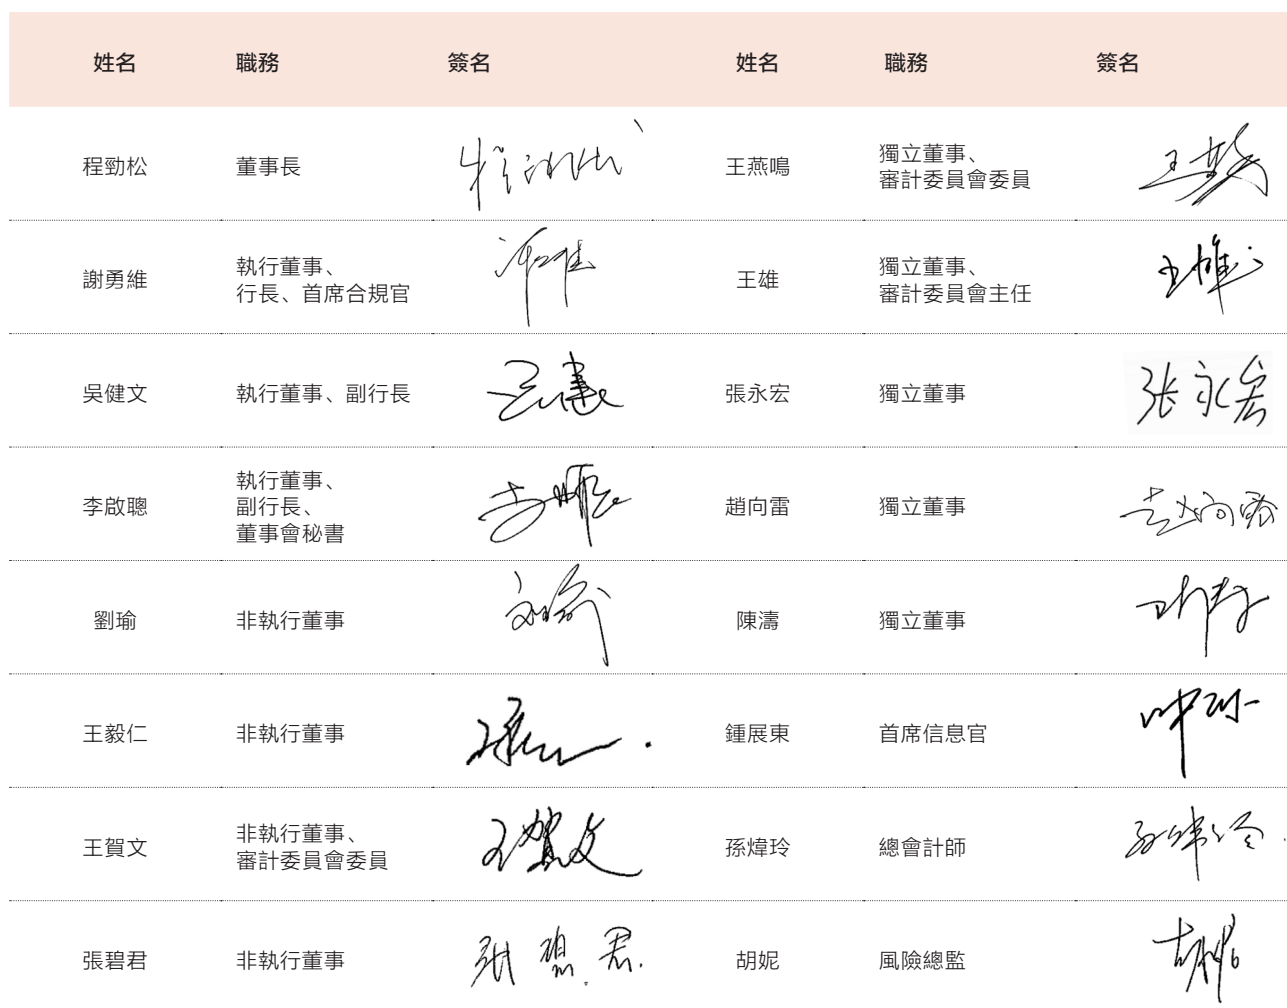 姓名 職務 簽名 姓名 職務 簽名
程勁松 董事長 王燕鳴 獨立董事、
審計委員會委員
謝勇維 執行董事、
行長、首席合規官
王雄 獨立董事、
審計委員會主任
吳健文 執行董事、副行長 張永宏 獨立董事 张永宏
李啟聰 執行董事、
副行長、
董事會秘書
趙向雷 獨立董事
劉瑜 非執行董事 陳濤 獨立董事
王毅仁 非執行董事 鍾展東 首席信息官
王賀文 非執行董事、
審計委員會委員
王贺文
孫煒玲 總會計師
張碧君 非執行董事 张碧君 胡妮 風險總監